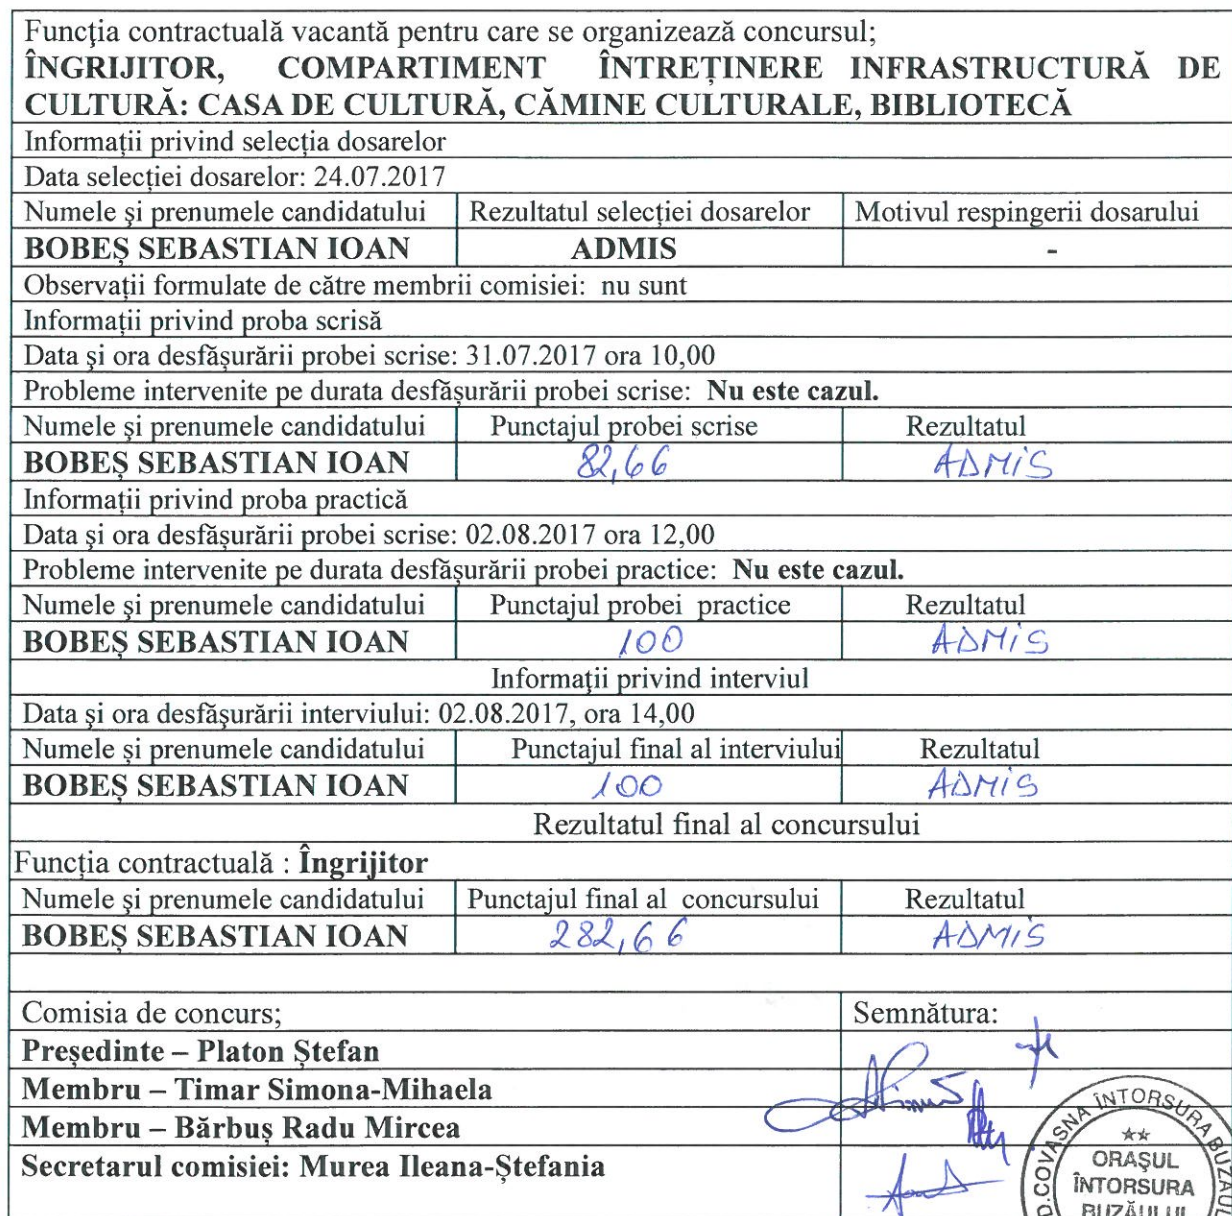 Funcția contractuală vacantă pentru care se organizează concursul;
ÎNGRIJITOR, COMPARTIMENT ÎNTREȚINERE INFRASTRUCTURĂ DE
CULTURĂ: CASA DE CULTURĂ, CĂMINE CULTURALE, BIBLIOTECĂ
Informații privind selecția dosarelor
Data selecției dosarelor: 24.07.2017
Numele şi prenumele candidatului Rezultatul selecției dosarelor Motivul respingerii dosarului
BOBEȘ SEBASTIAN IOAN ADMIS -
Observații formulate de către membrii comisiei: nu sunt
Informații privind proba scrisă
Data şi ora desfăşurării probei scrise: 31.07.2017 ora 10,00
Probleme intervenite pe durata desfăşurării probei scrise: Nu este cazul.
Numele şi prenumele candidatului Punctajul probei scrise Rezultatul
BOBEȘ SEBASTIAN IOAN 82,66 ADMIS
Informații privind proba practică
Data şi ora desfăşurării probei scrise: 02.08.2017 ora 12,00
Probleme intervenite pe durata desfăşurării probei practice: Nu este cazul.
Numele şi prenumele candidatului Punctajul probei practice Rezultatul
BOBEȘ SEBASTIAN IOAN 100 ADMIS
Informaţii privind interviul
Data şi ora desfăşurării interviului: 02.08.2017, ora 14,00
Numele şi prenumele candidatului Punctajul final al interviului Rezultatul
BOBEȘ SEBASTIAN IOAN 100 ADMIS
Rezultatul final al concursului
Funcția contractuală : Îngrijitor
Numele şi prenumele candidatului Punctajul final al concursului Rezultatul
BOBEȘ SEBASTIAN IOAN 282,66 ADMIS
Comisia de concurs; Semnătura:
Președinte – Platon Ștefan
Membru – Timar Simona-Mihaela
Membru – Bărbuș Radu Mircea
Secretarul comisiei: Murea Ileana-Ștefania
COVASNA ÎNTORSURA BUZĂUL
ORAŞUL
ÎNTORSURA
BUZĂULUI